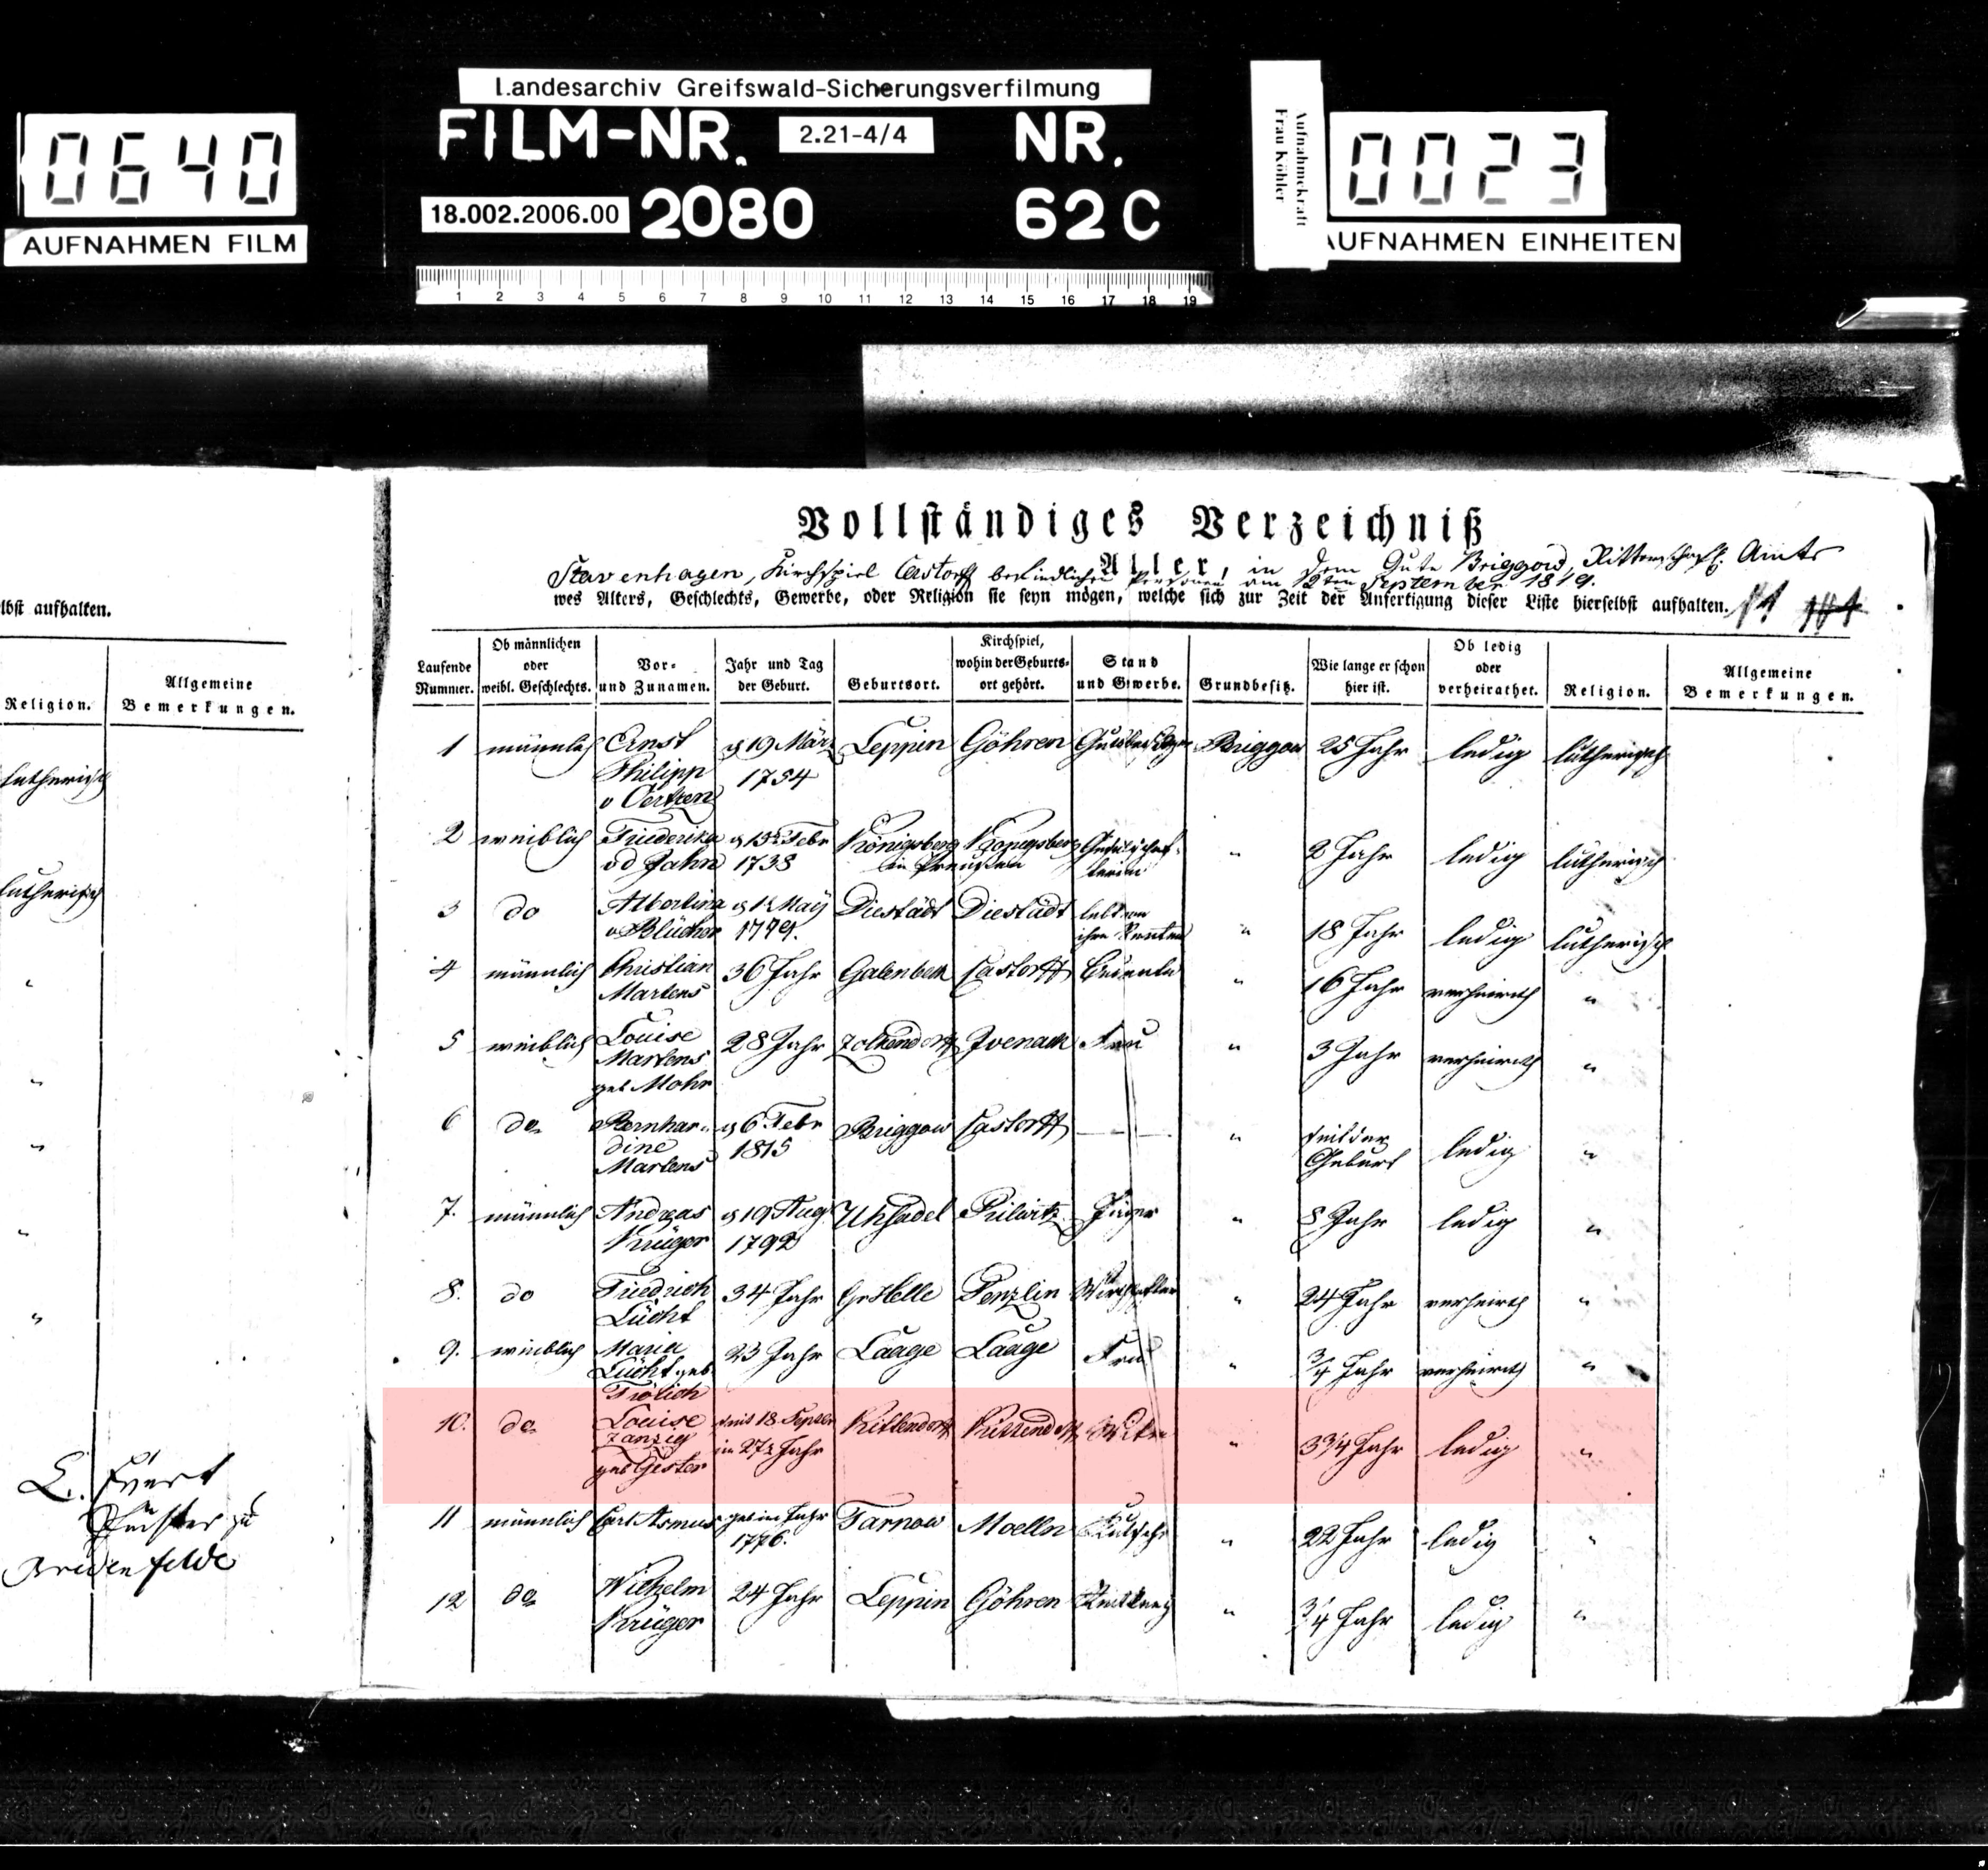 Landesarchiv Greifswald-Sicherungsverfilmung
FILM-NR. 2.21-4/4 NR.
18.002.2006.00 2080 62 C
0640
AUFNAHMEN FILM
Aufnahmekraft
Frau Köhler
0023
AUFNAHMEN EINHEITEN
1 2 3 4 5 6 7 8 9 10 11 12 13 14 15 16 17 18 19
lbst aufhalten.
Religion. Allgemeine Bemerkungen.
lutherisch
lutherisch
"
"
"
"
"
E. Evert
Pächter zu
Bredenfelde
Vollständiges Verzeichniß
Aller, in dem Gute Briggow, Ritterschaftl. Amts
Stavenhagen, Kirchspiel Castorff befindlichen Personen am 12ten September 1819.
wes Alters, Geschlechts, Gewerbe, oder Religion sie seyn mögen, welche sich zur Zeit der Anfertigung dieser Liste hierselbst aufhalten.
Laufende Nummer. Ob männlichen oder weibl. Geschlechts. Vor- und Zunamen. Jahr und Tag der Geburt. Geburtsort. Kirchspiel, wohin der Geburtsort gehört. Stand und Gewerbe. Grundbesitz. Wie lange er schon hier ist. Ob ledig oder verheirathet. Religion. Allgemeine Bemerkungen.
1 männlich Ernst Philipp v Oertzen 19 März 1754 Leppin Göhren Gutsbesitzer Briggow 25 Jahr ledig lutherisch
2 weiblich Friederika v d Jahn Febr 1738 Königsberg in Preussen Königsberg " 2 Jahr ledig lutherisch
3 do Albertina v Blücher May Diestädt Diestädt lebt von ihre Renten " 18 Jahr ledig lutherisch
4 männlich Christian Martens 36 Jahr Galenbeck Castorff " 16 Jahr verheirath "
5 weiblich Louise Martens geb Mohr 28 Jahr Zolkendorff Ivenack Frau " 3 Jahr verheirath "
6 do Bernhardine Martens 6 Febr 1815 Briggow Castorff — " seit der Geburt ledig "
7. männlich Andreas Krüger 19 Aug 1792 Uhsadel Pilwitz Jäger " 8 Jahr ledig "
8. do Friedrich Lücht 34 Jahr Gr Helle Penzlin " 24 Jahr verheirath "
9. weiblich Maria Lücht geb Frölich 23 Jahr Laage Laage Frau " 3/4 Jahr verheirath "
10. do Louise Zanzig geb Gester 18 im 27 Jahr Kittendorff Kittendorff " 3 3/4 Jahr ledig "
11 männlich Carl Asmus geb im Jahr 1776. Tarnow Moelln " 22 Jahr ledig "
12 do Wilhelm Krüger 24 Jahr Leppin Göhren Reitknecht " 3/4 Jahr ledig "